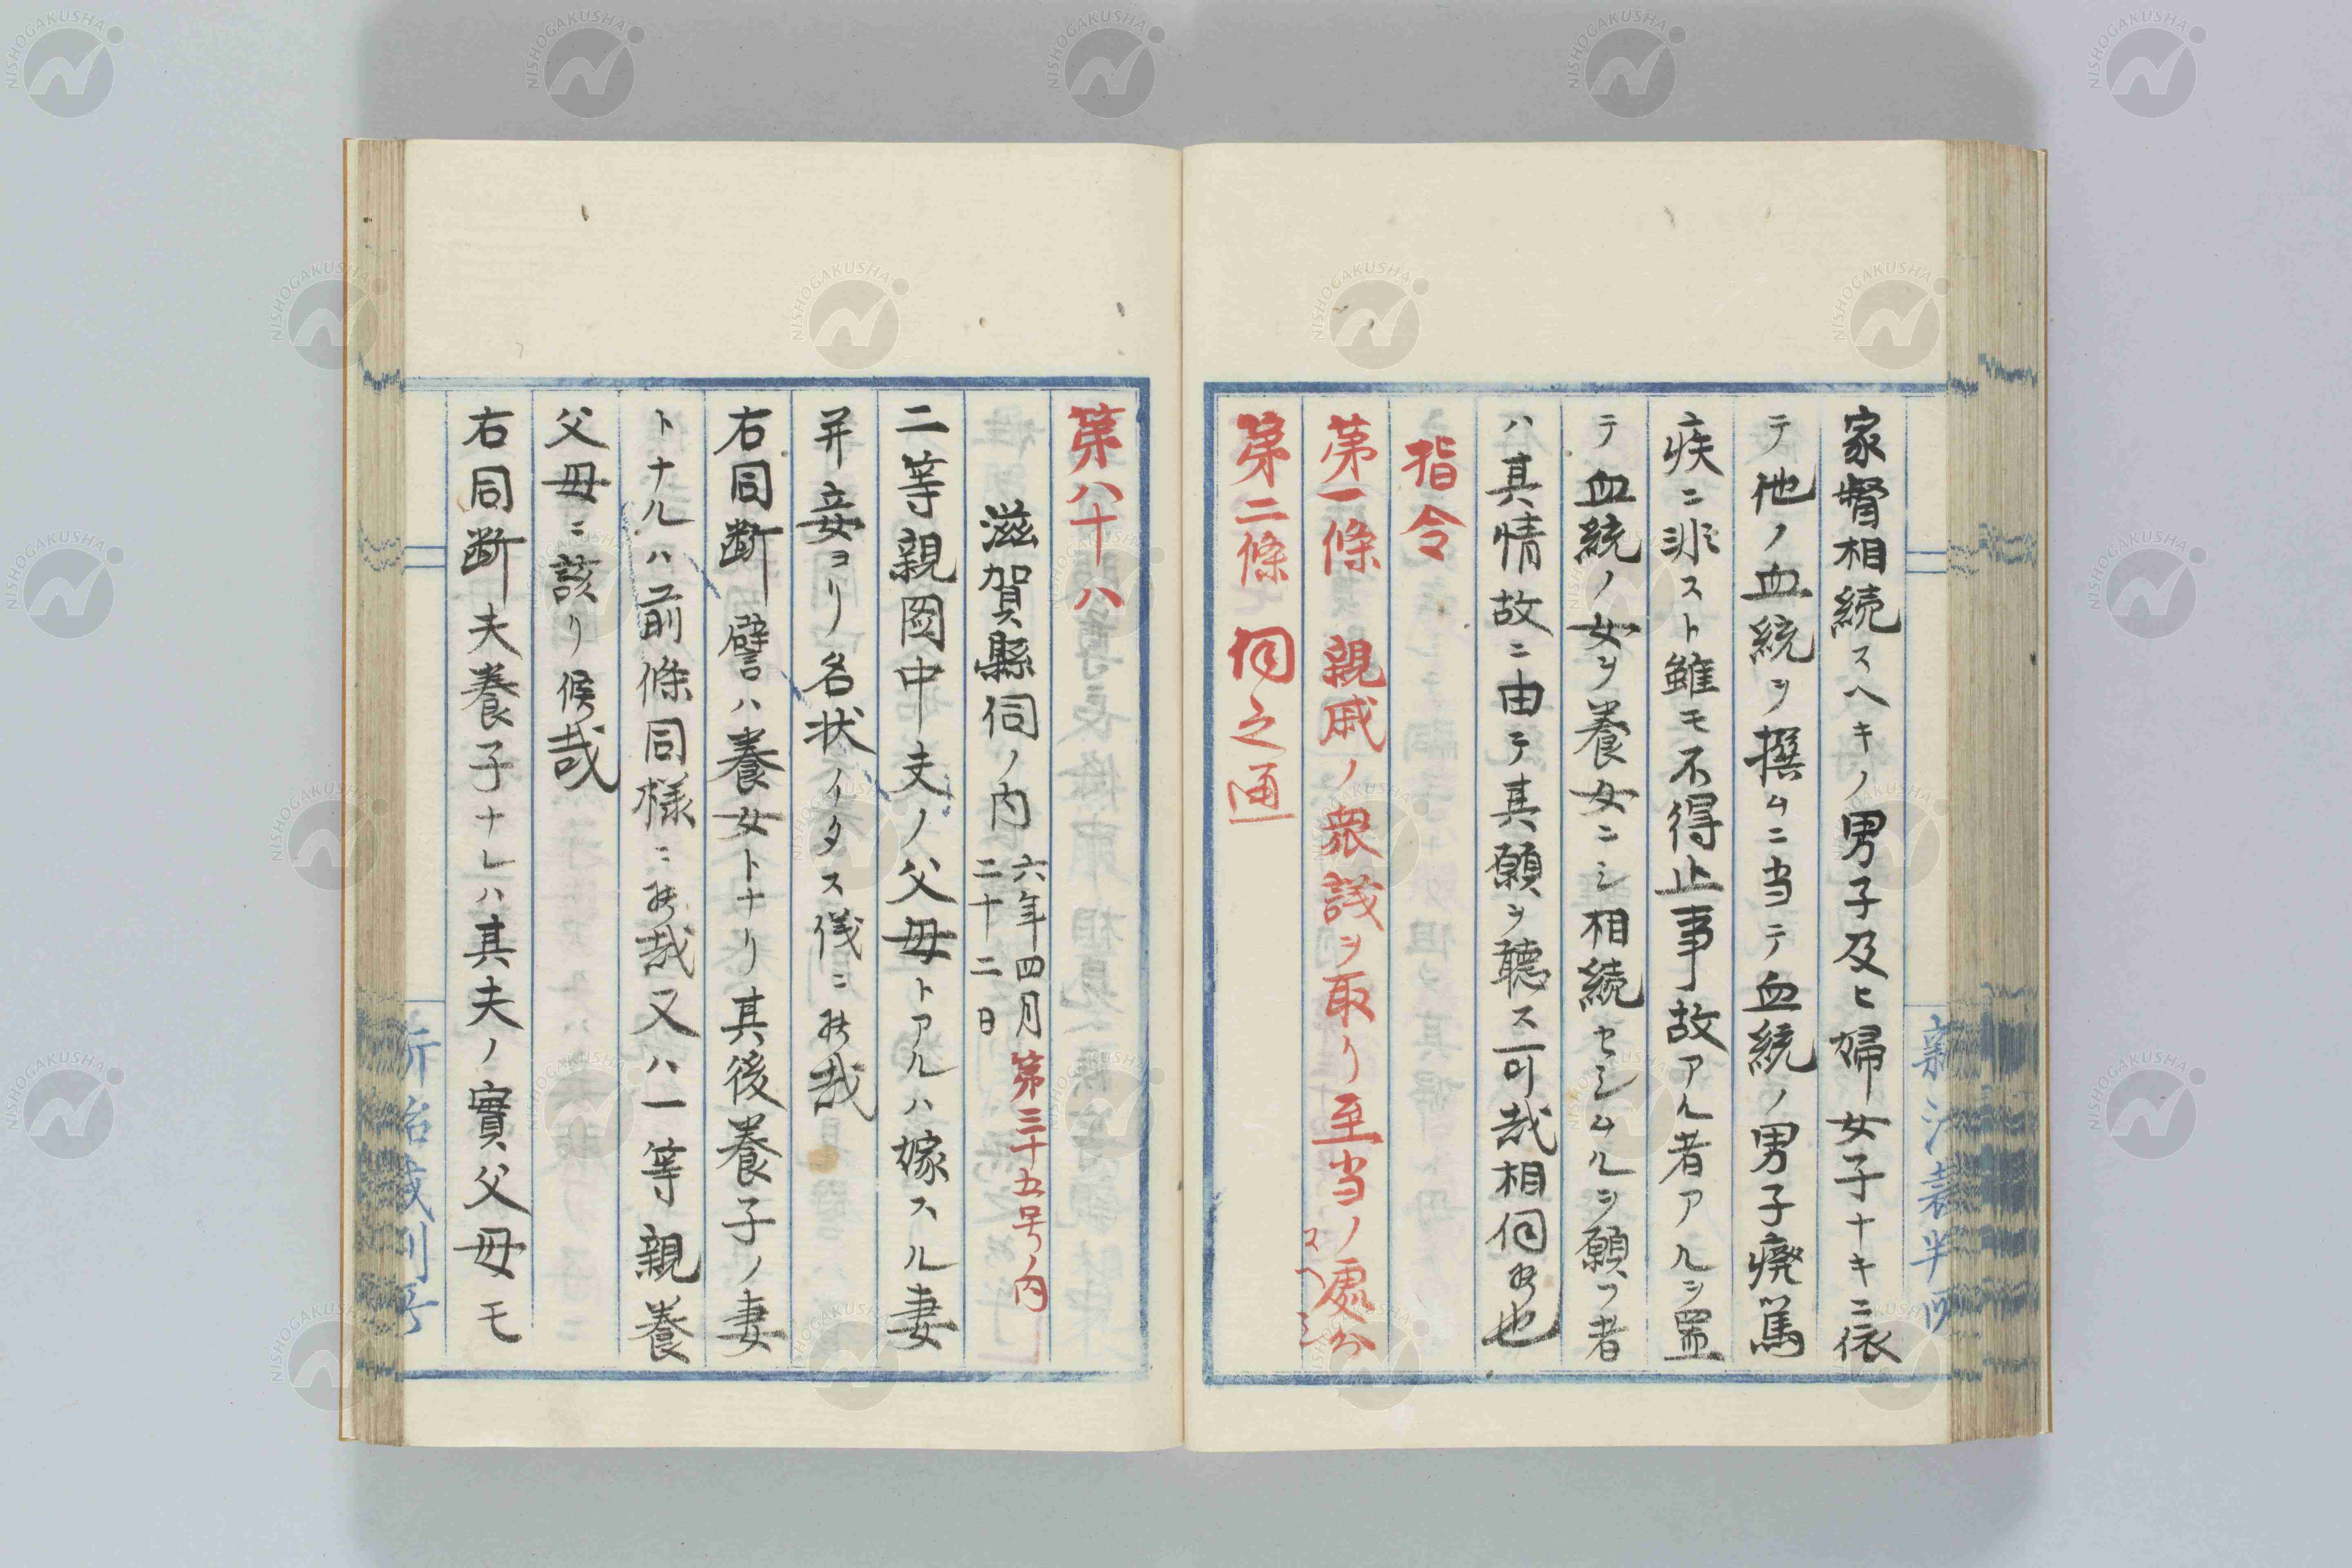 家督相続スヘキノ男子及ヒ婦女子ナキニ依
テ他ノ血統ヲ撰ムニ当テ血統ノ男子癈篤
疾ニ非スト雖モ不得止事故アル者アルヲ置
テ血統ノ女ヲ養女ニシ相続セシムルヲ願フ者
ハ其情故ニ由テ其願ヲ聴ス可哉相伺候也
指令
第一條 親戚ノ衆議ヲ取リ至当ノ處分
スヘシ
第二條 伺之通
第八十八
滋賀縣伺ノ内 六年四月
二十二日
第三十五号ノ内
二等親圖中夫ノ父母トアルハ嫁スル妻
并妾ヨリ名状イタス儀ニ候哉
右同断譬ハ養女トナリ其後養子ノ妻
トナルハ前條同様ニ候哉又ハ一等親養
父母ニ該リ候哉
右同断夫養子ナレハ其夫ノ實父母モ
NISHOGAKUSHA